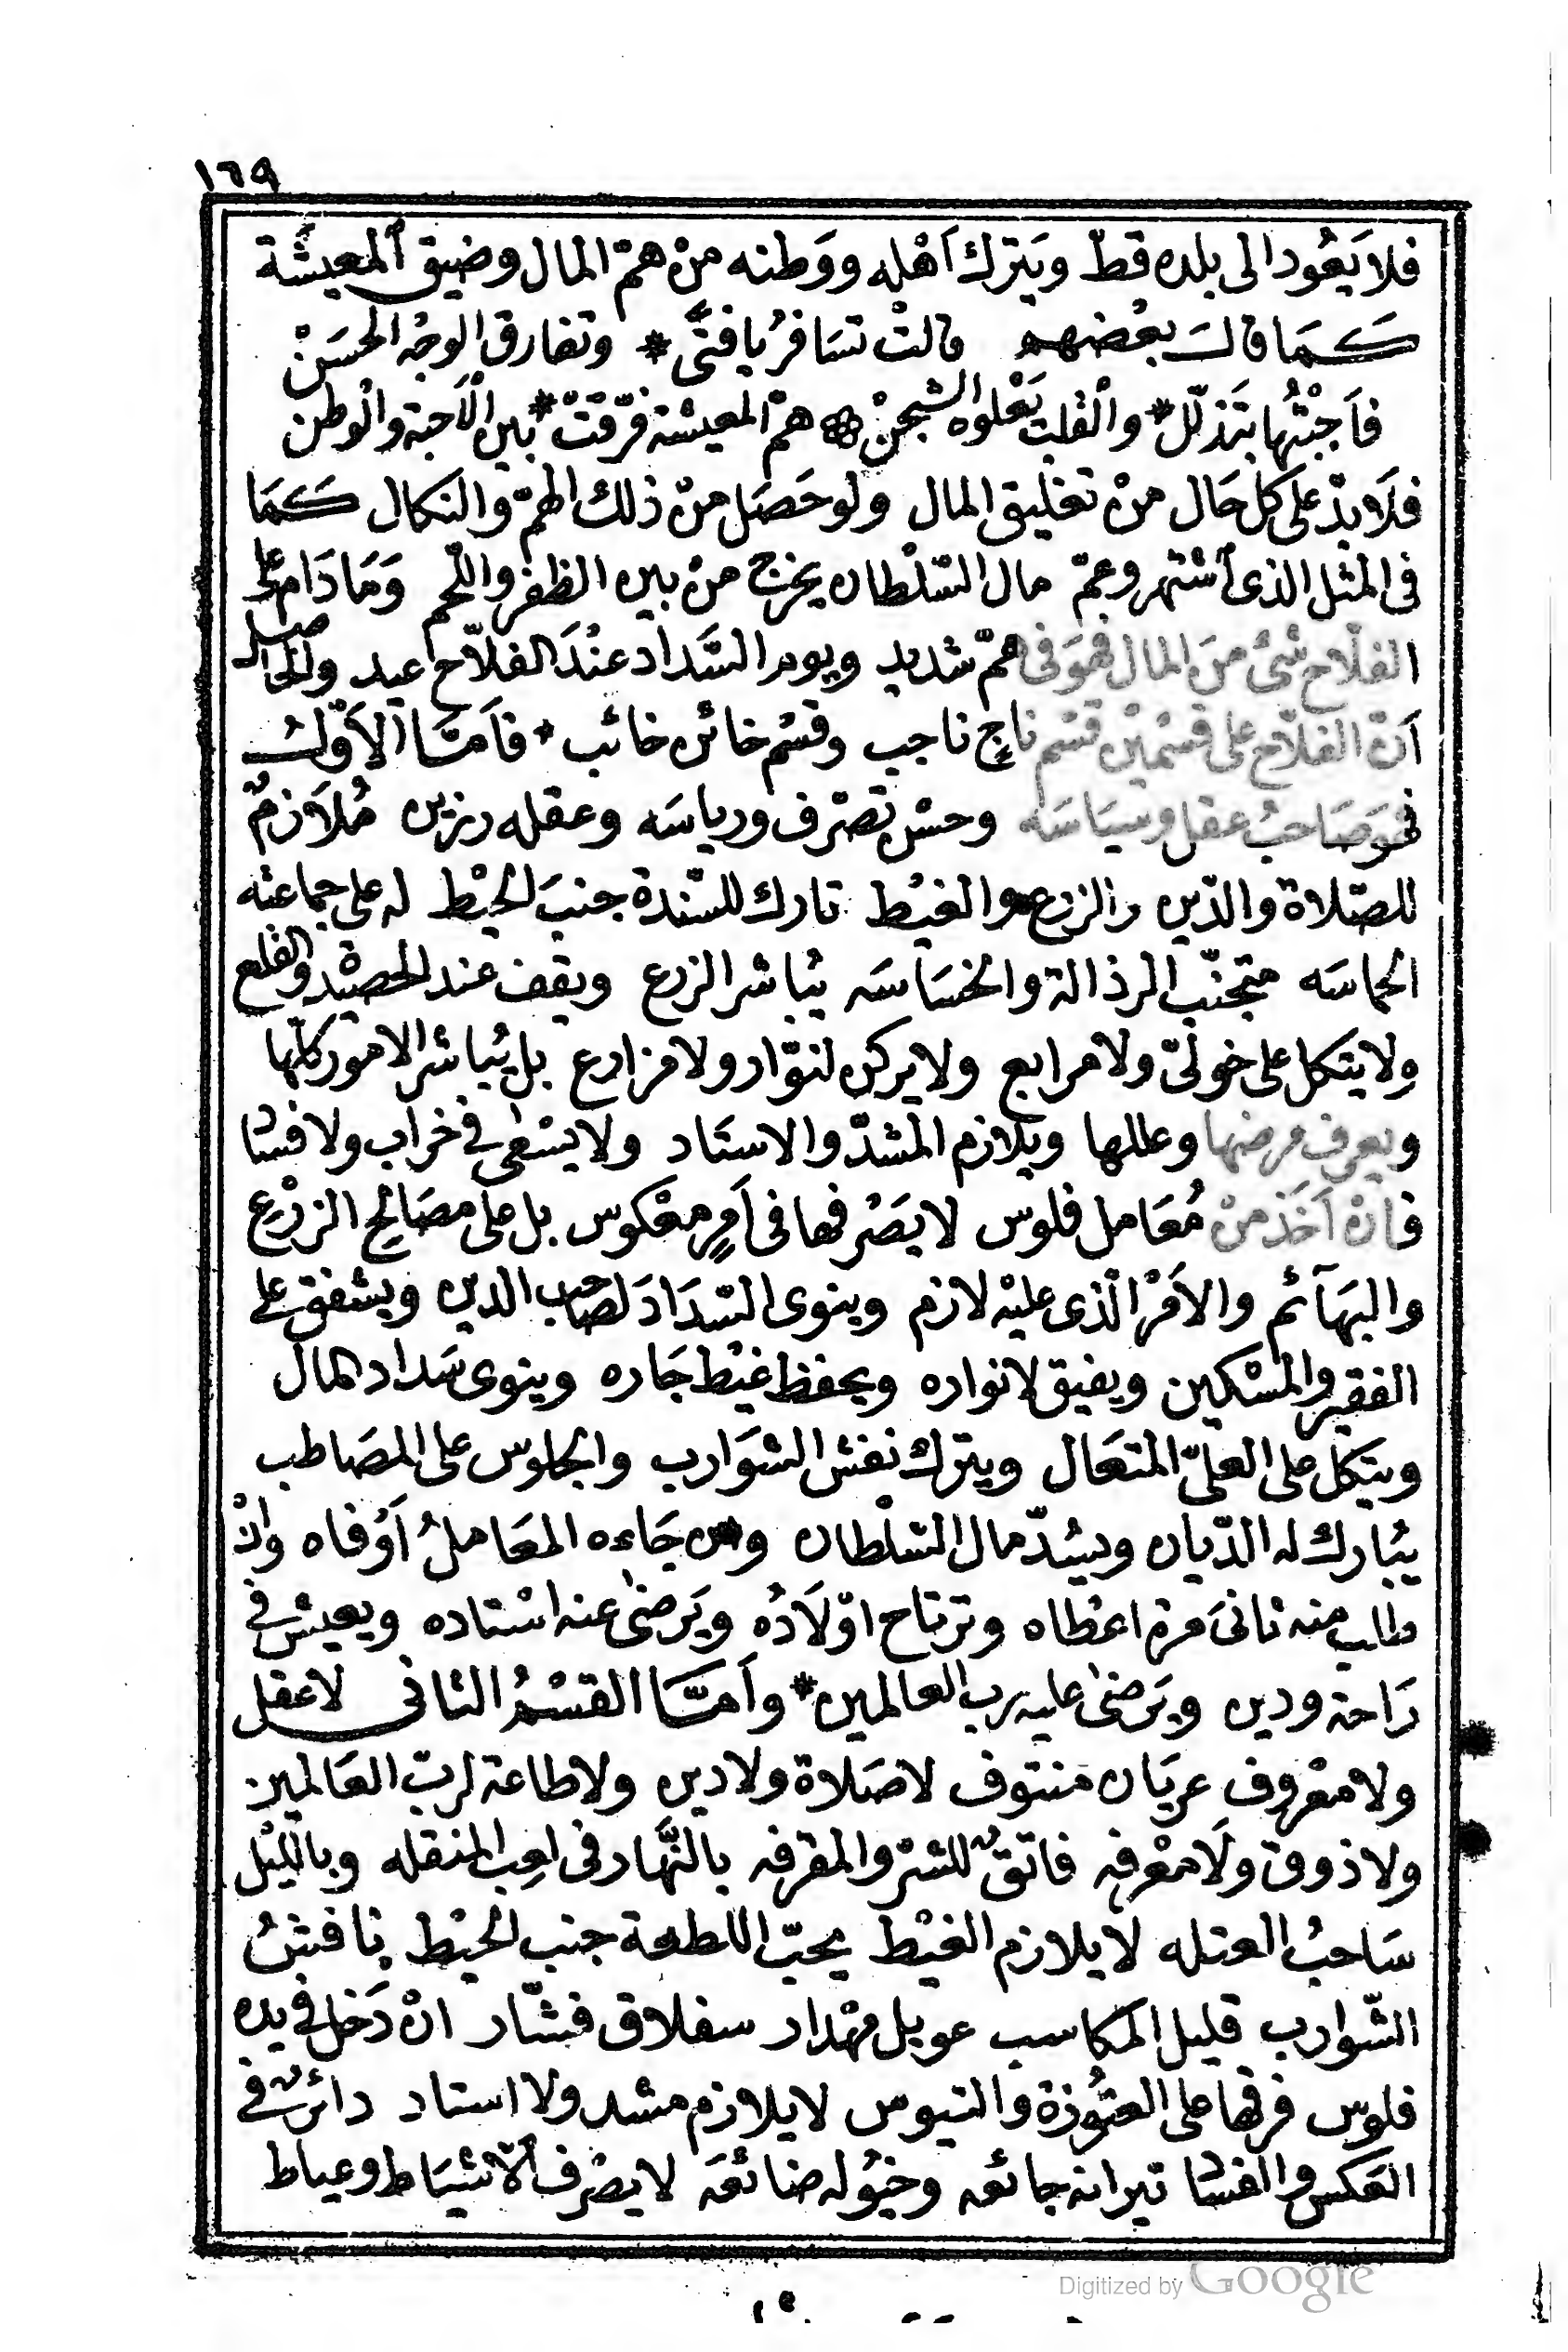 ١٦٩
فلا يَعُود الى بلده قطّ ويَترك اَهْله ووَطنه منْ همّ المال وضيق اَلمعيشَة
كَمَا قالَ بعْضهم قالتْ تسَافرُ يا فتًى * وتفارق الوجْه الحسَنْ
فاَجبْتُها بتَذلّل * والْقلب يَعْلوه الشجنْ همّ المعيشة فرّقتْ * بين الاَحبة والْوطن
فلاَ بدّ على كل حَال منْ تغليق المال ولو حَصَل منْ ذلك الهمّ والنكال كَمَا
فى المثل الذى اَشتهر وعمّ مال السّلْطان يخرج منْ بين الظفر واللّحم وَمَا دَام على
الفلّاح شئ منَ المال فهوَ فى همّ شديد ويوم السَّداد عنْدَ الفلاّح عيد والحاصل
اَنّ الفلّاح على قسْمين قسْم ناجٍ ناجب وقسْم خائن خائب * فاَمَّا الاَوّلُ
فهوَ صَاحبُ عقل وسيَاسَه وحسْن تصَرّف ورياسَه وعقله رزين مُلاَزمٌ
للصّلاة والدّين والزرع والغيْط تارك للسّندة جنبَ الحيْط له على جماعته
الحماسَه متجنّب الرذالة والخسَاسَه يُباشر الزرع ويقف عند الحصيْدة والقلع
ولا يتكل على خولىّ ولا مرابع ولا يركن لنوّار ولا مزارع بل يُباشر الامور كلّها
ويعرف مرضها وعللها ويلازم المشدّ والاستَاد ولا يسْعى فى خراب ولا فسَاد
فانْ اَخَذ منْ مُعَامل فلوس لا يصَرْفها فى اَمرٍ معْكوس بل على مصَالح الزرْع
والبهَآئم والاَمْر الّذى عليْه لازم وينوى السّدَادَ لصَاحب الدين ويشفق على
الفقير والمسْكين ويفيق لانواره ويحفظ غيْط جَاره وينوى سَداد المال
ويتكل على العلىّ المتعَال ويترك نفش الشَوَارب والجلوس على المصَاطب
يُبارك له الدّيان ويسُدّ مال السّلْطان ومن جَاءه المعَاملُ اَوْفاه وانْ
طالب منه ثانىَ مرة اعْطاه وترتاح اوْلاَدُه ويَرضىٰ عنه اسْتاده ويعيش فى
رَاحة ودين ويَرضىٰ عليه رب العالمين * واَمَّا القسْمُ الثانى لا عقل
ولا معْروف عريَان منتوف لا صَلاة ولا دين ولا طاعة لربّ العَالمين
ولا ذوق ولَا معْرفه فاتقٌ للشرّ والمقرفه بالنّهَار فى لعِب المنقله وبالليْل
سَاحبُ العتله لا يلازم الغيْط يحبّ اللطعة جنب الحيْط نافشُ
الشّوارب قليل المكاسب عويل مهْدار سفلاق فشّار انْ دَخل فى يده
فلوس فرقها على العتُوزة والتيوس لا يلازم مشد ولا استاد دائر فى
العكس والفسَاد تيرانه جائعه وخيُوله ضائعَه لا يصْرف اَلّا شيَاط وعياط